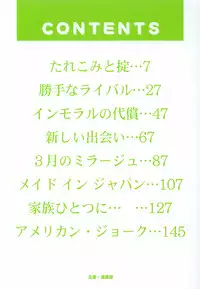 CONTENTS
たれこみと掟…7
勝手なライバル…27
インモラルの代償…47
新しい出会い…67
3月のミラージュ…87
メイド イン ジャパン…107
家族ひとつに… …127
アメリカン・ジョーク…145